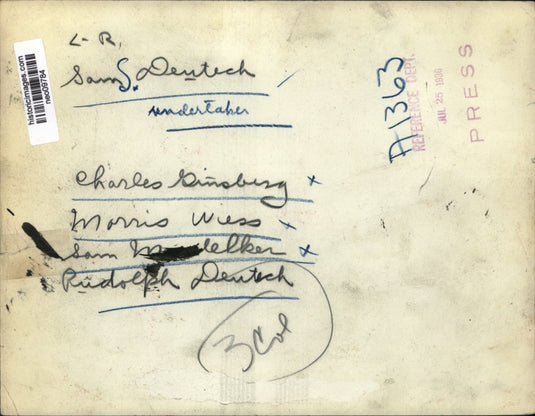 L-R,
Sam S. Deutsch
undertaker
Charles Ginsberg x
Morris Wess x
Sam M delker x
Rudolph Deutsch
3 Col
historicimages.com
neo09784
A1363
REFERENCE DEPT.
JUL 25 1936
PRESS